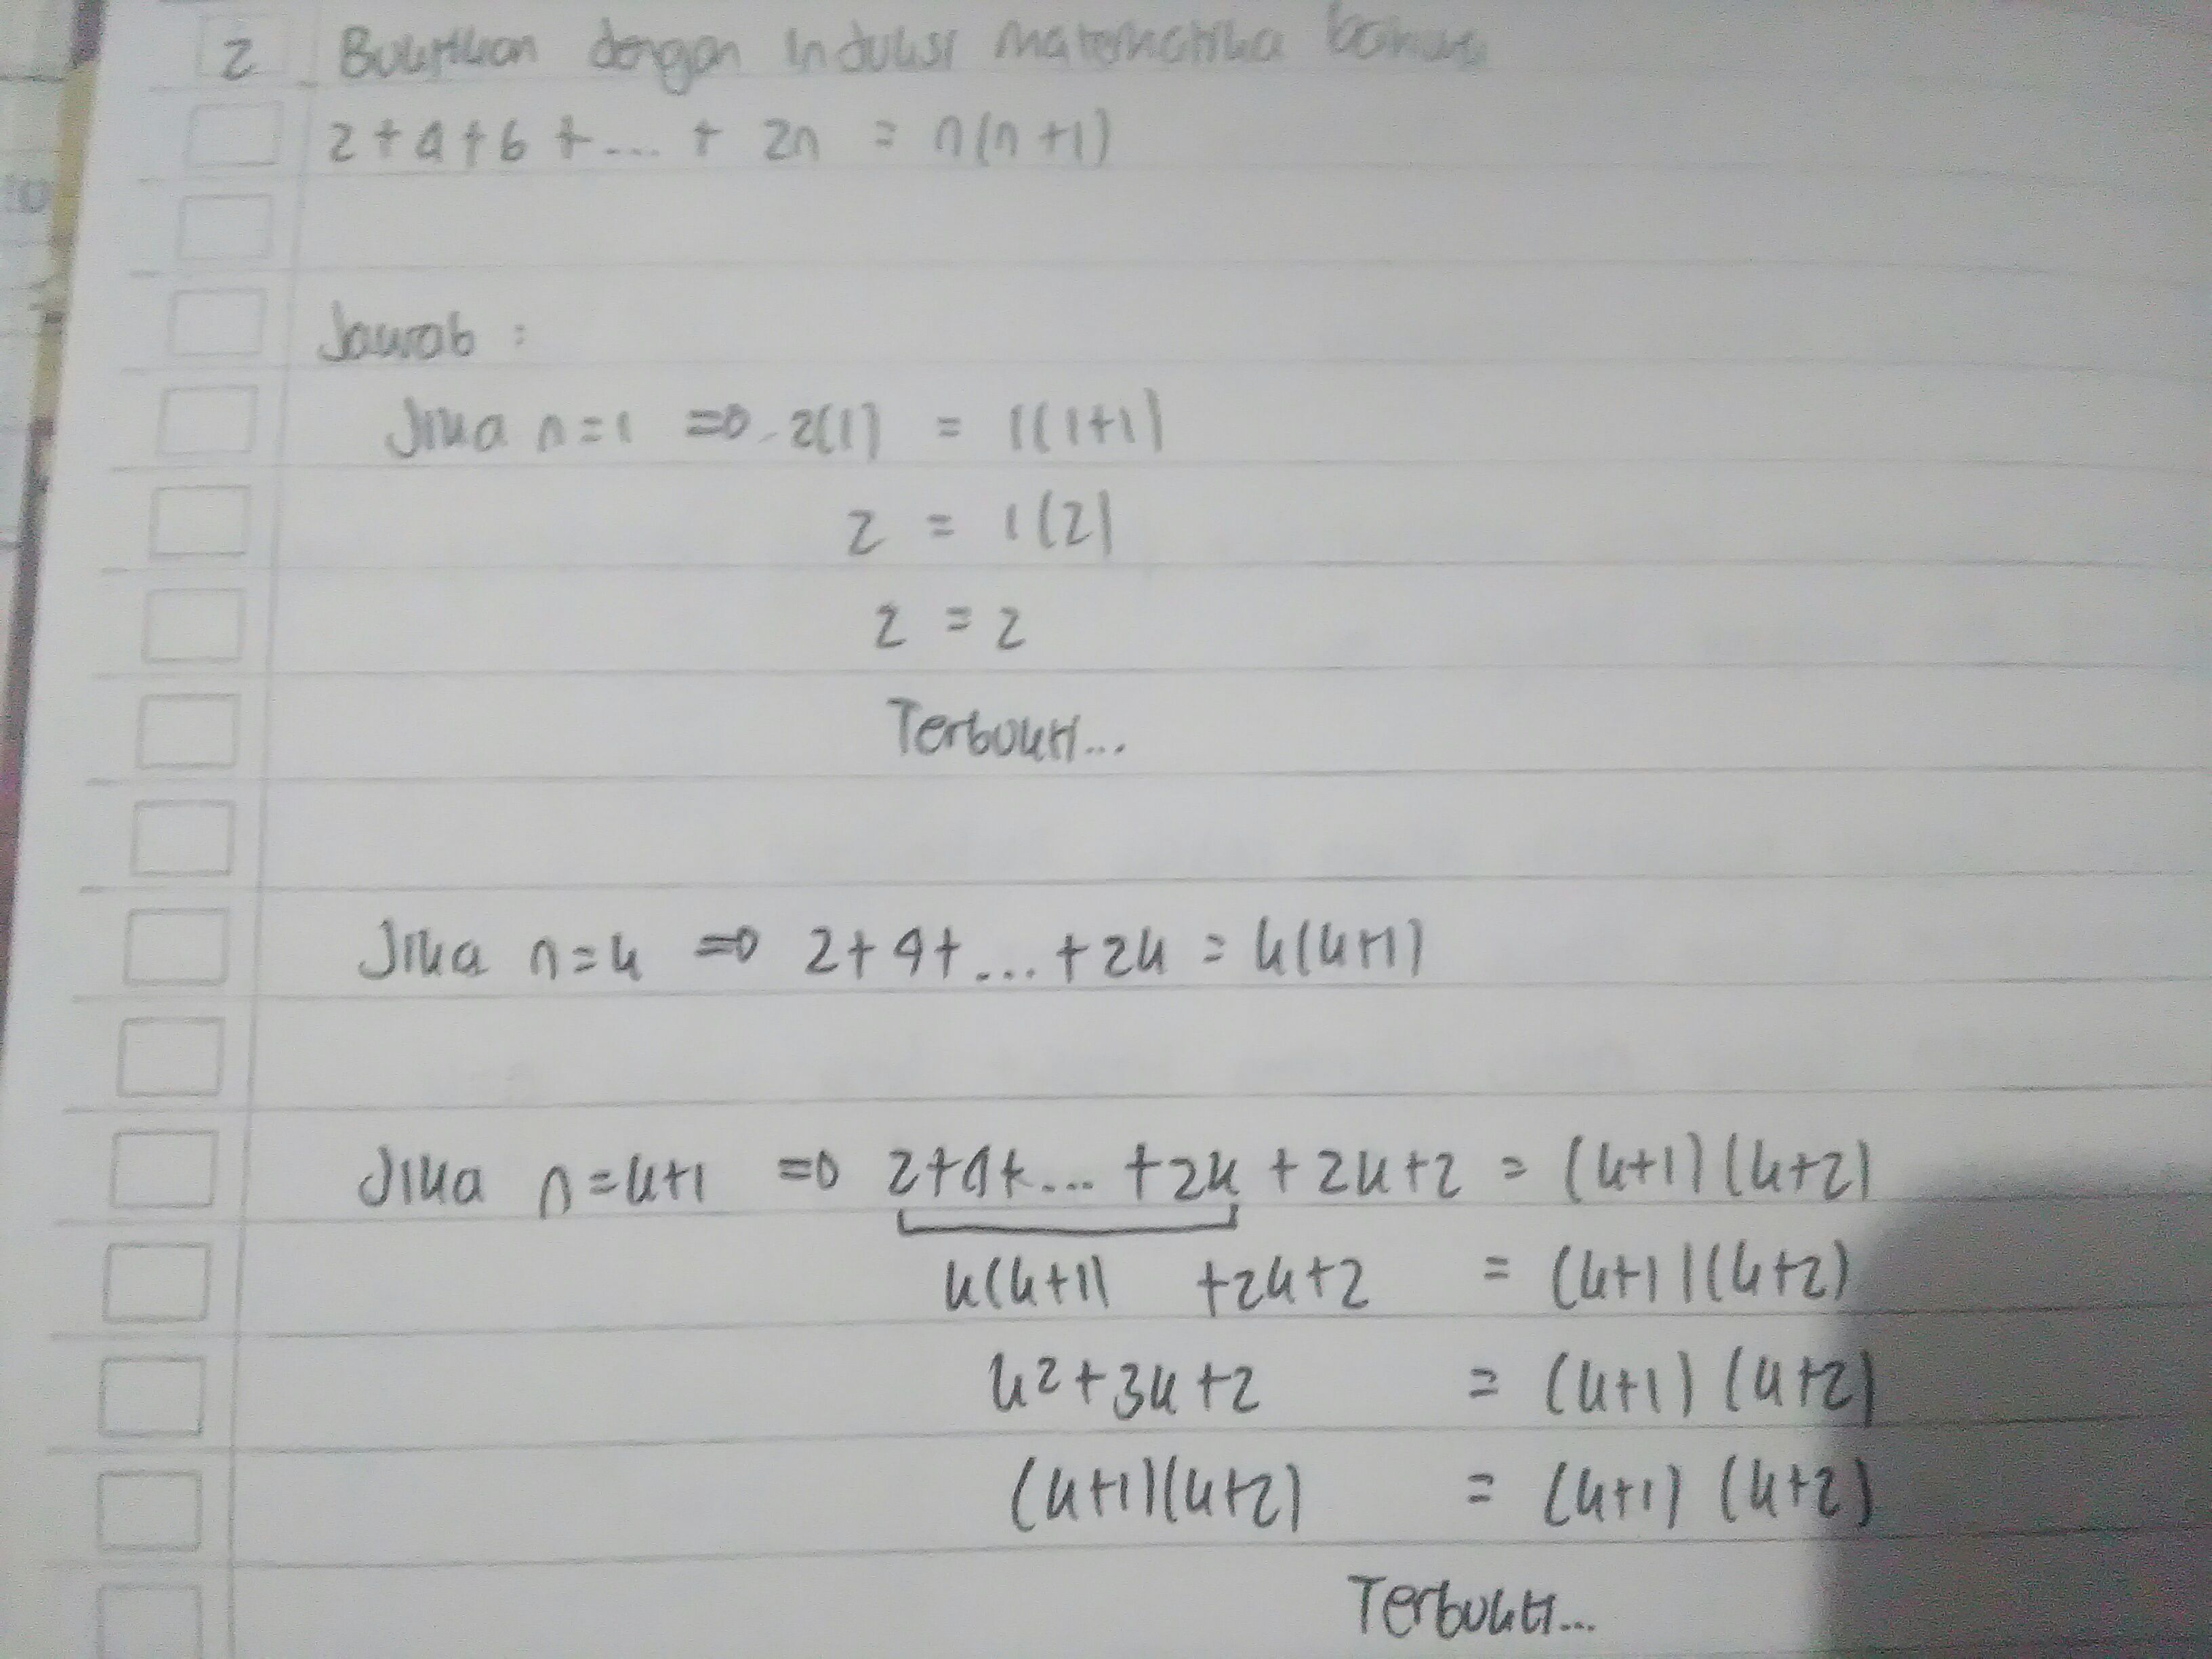 2 Buktikan dengan Induksi matematika bahwa
2 + 4 + 6 + ... + 2n = n(n+1)
Jawab :
Jika n=1 => 2(1) = 1(1+1)
2 = 1(2)
2 = 2
Terbukti...
Jika n=k => 2+4+...+2k = k(k+1)
Jika n=k+1 => 2+4+...+2k + 2k+2 = (k+1)(k+2)
k(k+1) +2k+2 = (k+1)(k+2)
k²+3k+2 = (k+1)(k+2)
(k+1)(k+2) = (k+1)(k+2)
Terbukti...